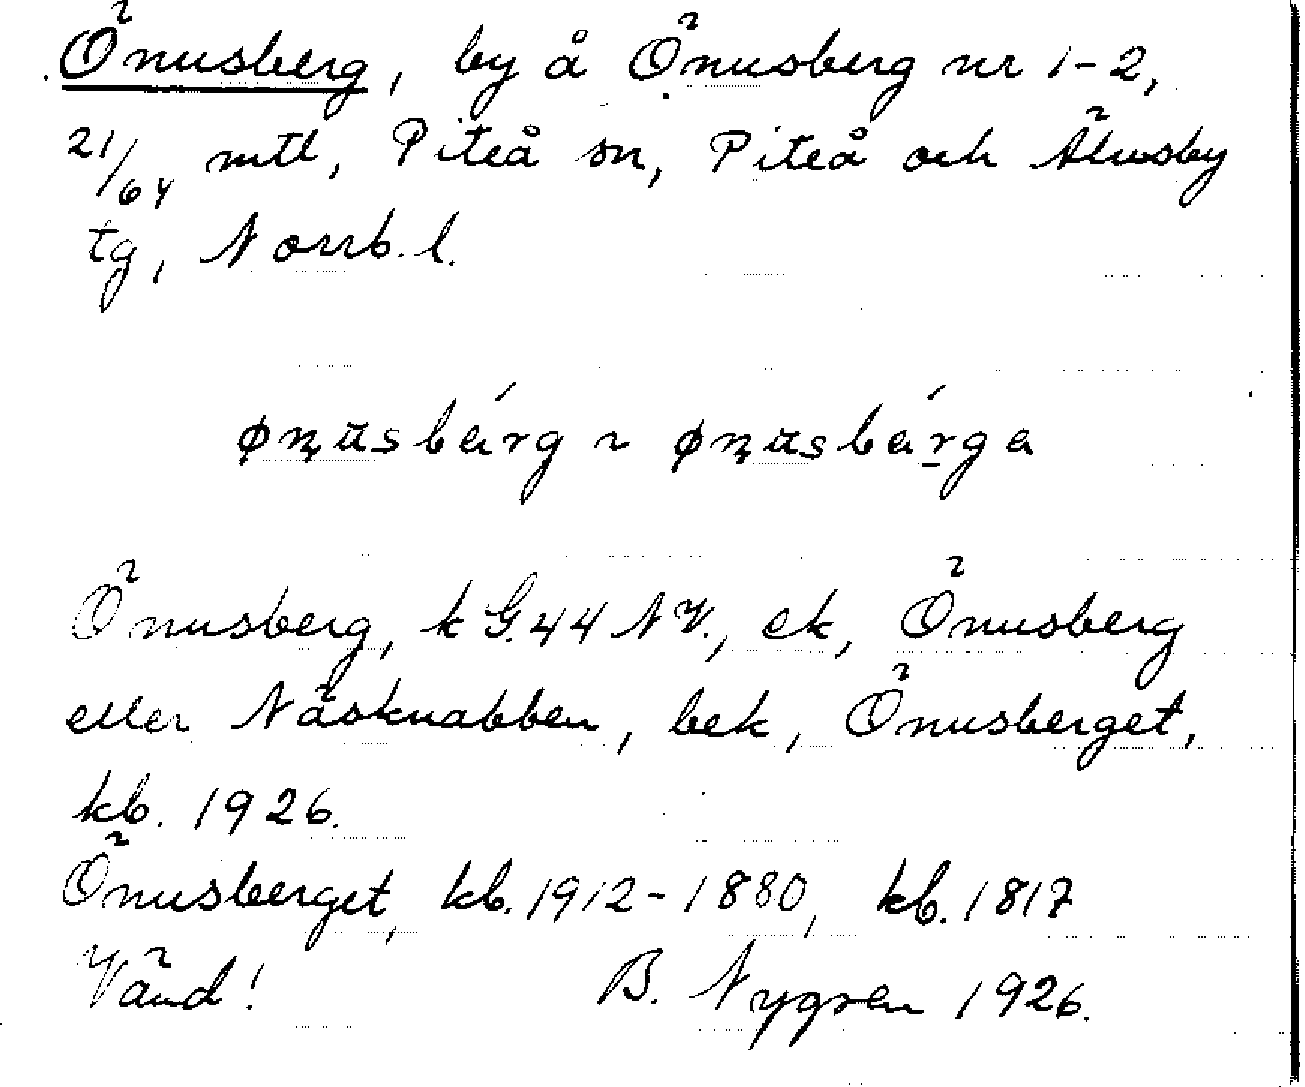 Önusberg, by å Önusberg nr 1-2,
21/64 mtl, Piteå sn, Piteå och Älvsby
tg, Norrb. l.
ønusbárg ~ ønusbárga
Önusberg, k G.44 NV., ek, Önusberg
eller Näsknabben, bek, Önusberget,
kb. 1926.
Önusberget, kb. 1912-1880, kb. 1817
Vänd! B. Nygren 1926.